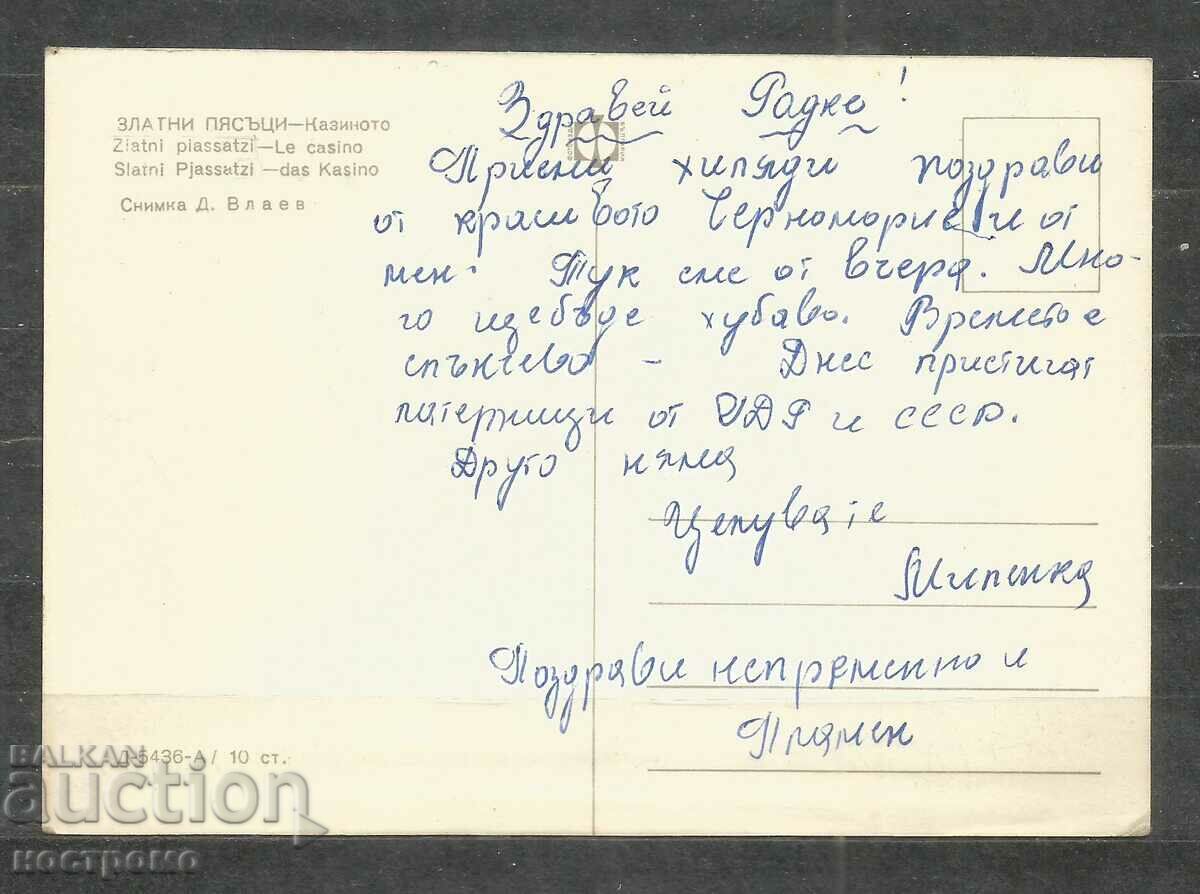 ЗЛАТНИ ПЯСЪЦИ—Казиното
Zlatni piassatzi—Le casino
Slatni Pjassatzi—das Kasino
Снимка Д. Влаев
Здравей Радке!
Приеми хиляди поздрави
от красивото Черноморие и от
мен. Тук сме от вчера. Мно-
го ще бъде хубаво. Времето е
слънчево - Днес пристигат
летовници от ГДР и СССР.
Друго няма
Целувам те
Миленка
Поздрави непременно и
Пламен
Д-5436-А/ 10 ст.
BALKAN
auction
костромо